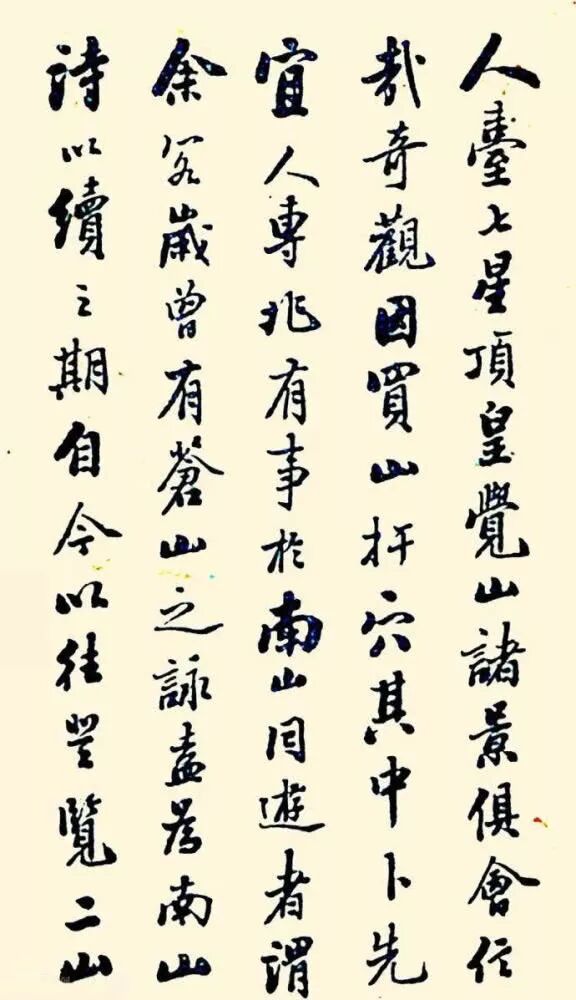 人臺七星頂皇覺山諸景俱會信
哉奇觀因買山扦穴其中卜先
宜人專兆有事於南山同遊者謂
余客歲曾有蒼山之詠盍為南山
詩以續之期自今以往登覽二山